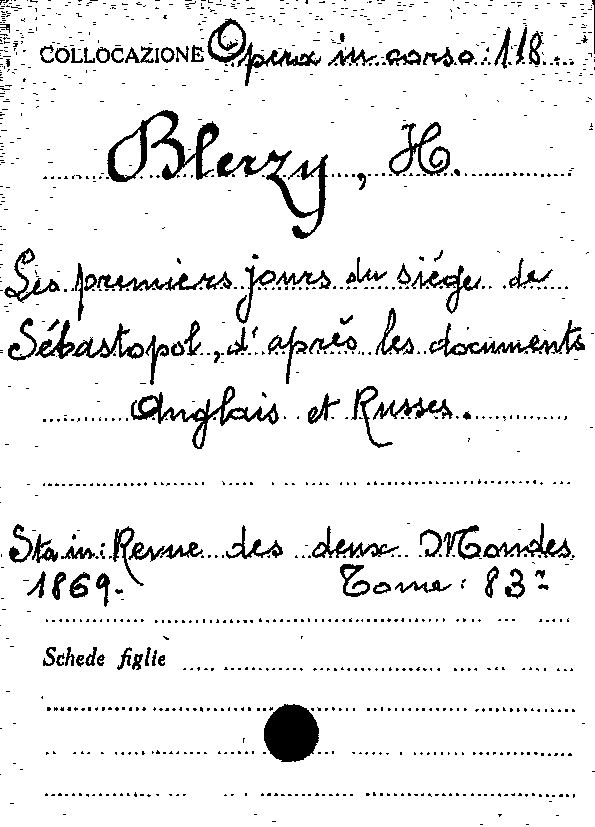 COLLOCAZIONE Opera in corso: 118
Blerzy, H.
Les premiers jours du siége de
Sébastopol, d'après les documents
Anglais et Russes.
Sta in: Revue des deux Mondes
1869. Tome: 83~
Schede figlie